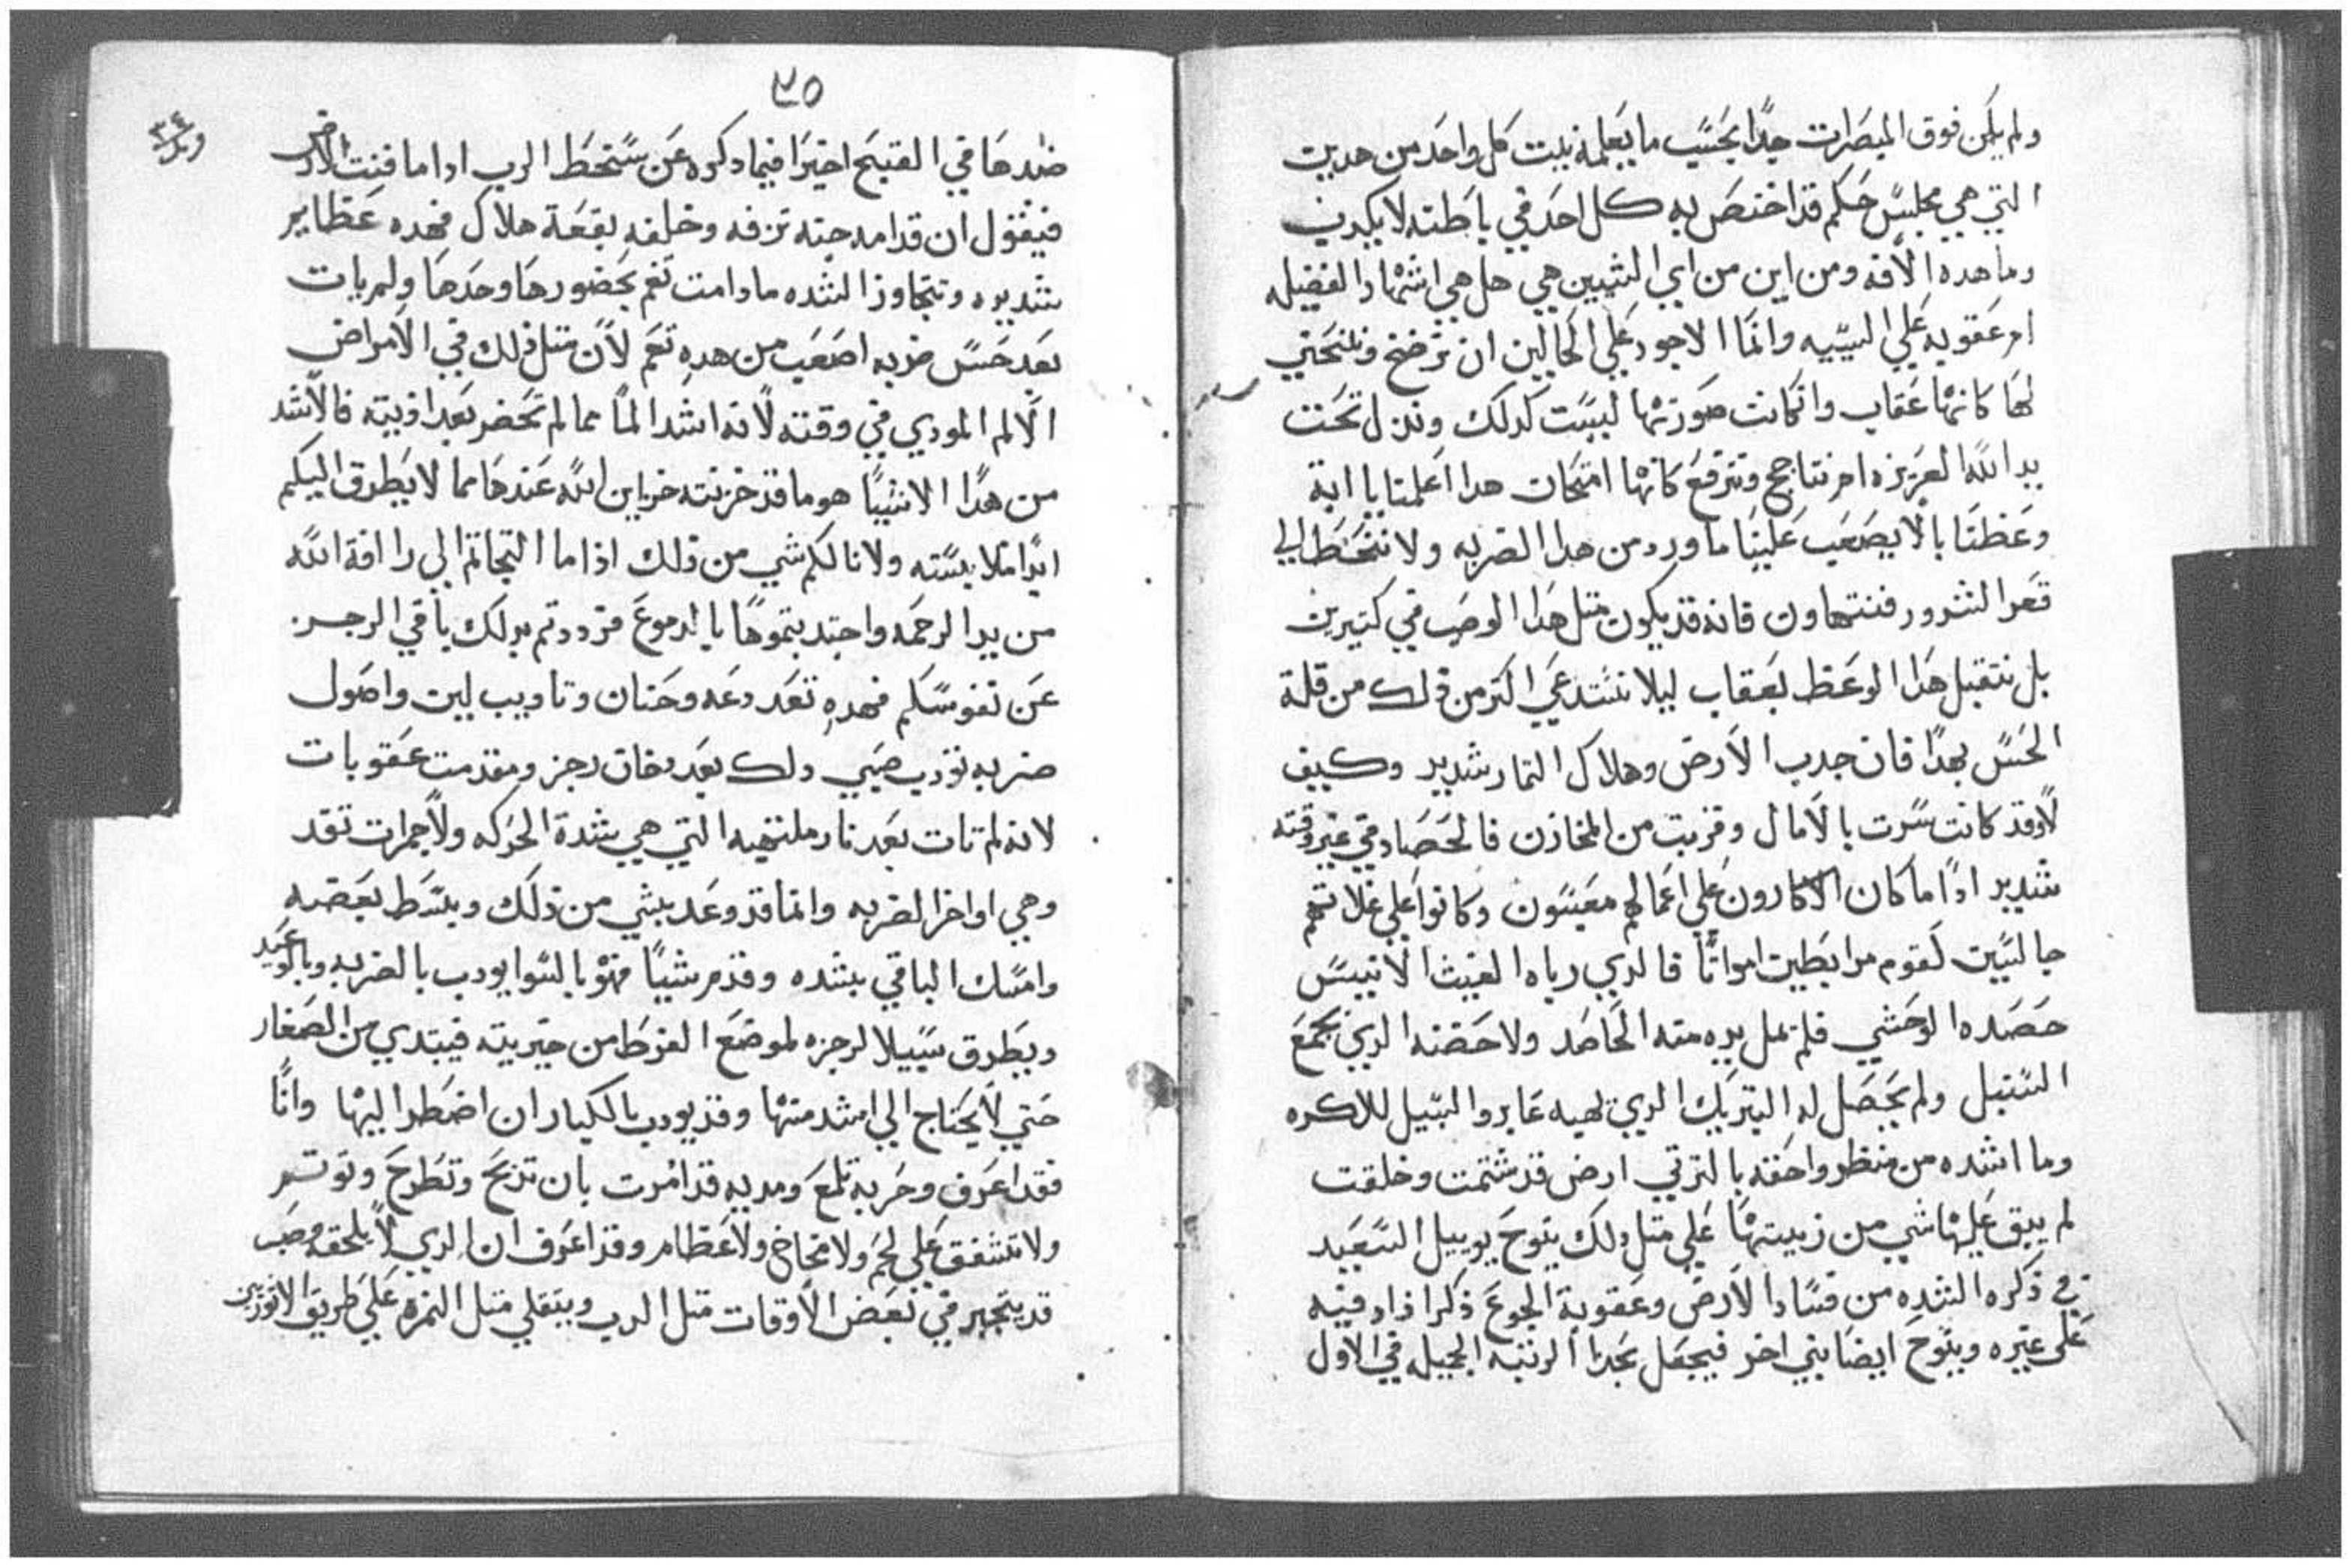 ولم يكن فوق المبصرات جدًا بحسب ما يعلمه بيت كل واحد من هدين
التي هي مجلس حكم قد اختص به كل احد في باطنه لا يكدب
وما هده الافه ومن اين من اي الشيين هي هل هي اشهاد الفضيله
ام عقوبه علي السييه وانما الاجود علي الحالين ان نرضخ وننحني
لها كانها عقاب وان كانت صورتها ليست كدلك ونندل تحت
يد الله العزيزه ام نتاجج ونترفع كانها امتحان هدا اعلمنا يا ابة
وعظنا بالا يصعب علينا ما ورد من هدا الضربه ولا ننحط الي
قعر الشرور فنتهاون فانه قد يكون مثل هدا الوصب في كتيرين
بل نتقبل هدا الوعظ بعقاب ليلا نستدعي اكتر من دلك من قلة
الحس بهدا فان جدب الارض وهلاك التمار شديد وكيف
لا وقد كانت سرت بالامال وقربت من المخازن فالحصاد في غير وقته
شديد ادا ما كان الاكارون علي اعمالهم معبسون وكانوا علي غلاتهم
جالسين كقوم مرابطين امواتًا فالدي رباه الغيث الانيس
حصده الوحشي فلم يمل يده منه الحاصد ولا حضنه الدي يجمع
السنبل ولم يحصل له التبريك الدي يهبه عابروا السبيل للاكره
وما اشده من منظر واحقه بالترتي ارض قد شتمت وخلقت
لم يبق عليها شي من زينتها علي متل دلك ينوح يوييل السعيد
في ذكره الشده من فساد الارض وعقوبة الجوع ذكرا زاد فيه
علي غيره وينوح ايضا نبي اخر فيجعل بحدا الرتبه الجميله في الاول
٣٥
٣٤
ضدها في القبيح اخيرا فيما دكره عن سخط الرب ادا ما فنت الارض
فيقول ان قدامه جنه ترفه وخلفه بقعة هلاك فهده عظايم
شديده وتتجاوز الشده ما دامت تغم بحضورها وحدها ولم يات
بعد حس ضربه اصعب من هده نعم لان متل ذلك في الامراض
الالم المودي في وقته لانه اشد الما مما لم تحضر بعد اذيته فالاشد
من هدا الاشيا هو ما قد خزنته خزاين الله عندها مما لا يطرق اليكم
ابدا ملابسته ولا نالكم شي من ذلك اذا ما التجاتم الي رافة الله
من يد الرحمه واجتدبتموها بالدموع فرددتم بدلك باقي الرجز
عن نفوسكم فهده تعد دعه وحنان وتاديب لين واصول
ضربه تودب صبي دلك بعد دخان رجز ومقدمت عقوبات
لانه لم تات بعد نار ملتهبه التي هي شدة الحركه ولا جمرات تقد
وهي اواخر الضربه وانما قد وعد بشي من ذلك وبسط بعضه
وامسك الباقي بشده وقدم شيا فهو بالسوا يودب بالضربه وبالوعيد
ويطرق سبيلا لرجزه لموضع الفرط من خيريته فيبتدي من الصغار
حتي لا يحتاج الي اشد منها وقد يودب بالكبار ان اضطر اليها وانا
فقد اعرف وحربه تلمع ومديه قد امرت بان تدبح وتطرح وتوتم
ولا تشفق علي لحم ولا مخاخ ولا عظام وقد اعرف ان الدي لا يلحقه وصب
قد يتجبر في بعض الاوقات متل الدب ويتقلي متل النمره علي طريق الاثوريين